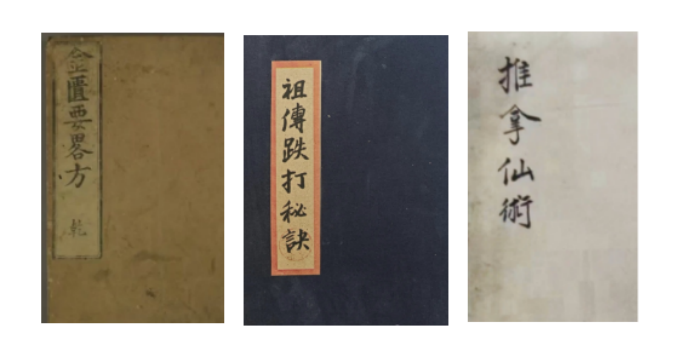 金匱要畧方
乾
祖傳跌打秘訣
推拿仙術